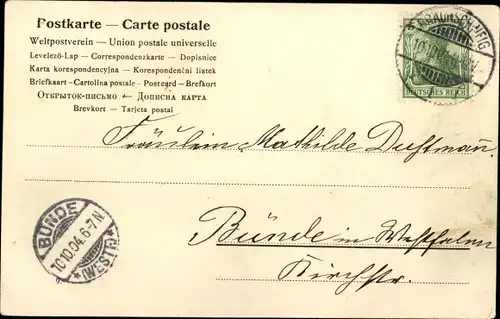 Postkarte — Carte postale
Weltpostverein — Union postale universelle
Levelező-Lap — Correspondenzkarte — Dopisnice
Karta korespondencyjna — Korespondenčni listek
Briefkaart - Cartolina postale - Postcard - Brefkort
Открытое-письмо — Дописна карта
Brevkort — Tarjeta postal
BRAUNSCHWEIG
DEUTSCHES REICH
Fräulein Mathilde
BÜNDE
10.10.04.6-7N.
*(WESTF.)*
Bünde in Westfalen
Kirchstr.